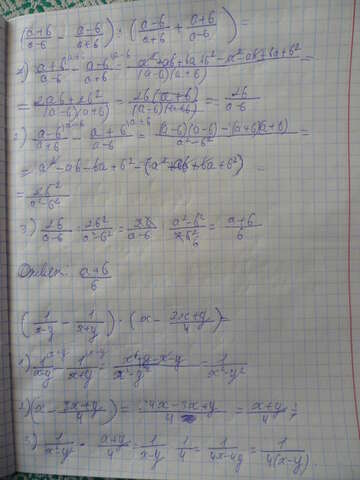 (a+b/a-b - a-b/a+b) : (a-b/a+b + a+b/a-b) =
1) a+b/a-b - a-b/a+b = a²+ab+ba+b²-a²-ab+ba+b²/(a-b)(a+b) =
= 2ab+2b²/(a-b)(a+b) = 2b(a+b)/(a-b)(a+b) = 2b/a-b
2) a-b/a+b - a+b/a-b = (a-b)(a-b)-(a+b)(a+b)/a²-b² =
= a²-ab-ba+b²-(a²+ab+ba+b²)
= 2b²/a²-b²
3) 2b/a-b : 2b²/a²-b² = 2b/a-b · a²-b²/2b² = a+b/b
Ответ: a+b/b
(1/x-y - 1/x+y) · (x - 3x+y/4) =
1) 1/x-y - 1/x+y = x+y-x-y/x²-y² = 1/x²-y²
2) (x - 3x+y/4) = 4x-3x+y/4 = x+y/4
3) 1/x-y · x+y/4 = 1/x-y · 1/4 = 1/4x-4y = 1/4(x-y).